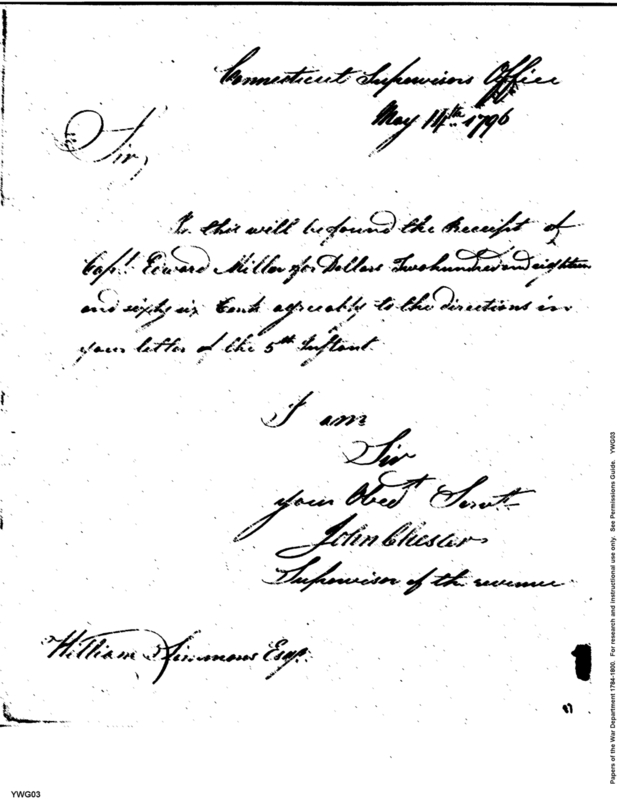 Connecticut Supervisors Office
May 14th 1796
Sir,
In this will be found the Receipt of
Capt. Edward Miller for Dollars Two hundred and eighteen
and sixty six Cents agreeably to the directions in
your letter of the 5th Instant.
I am
Sir
your Obed.t Servt.
John Chester
Supervisor of the revenue
William Simmons Esq.
Papers of the War Department 1784-1800. For research and instructional use only. See Permissions Guide. YWG03
YWG03